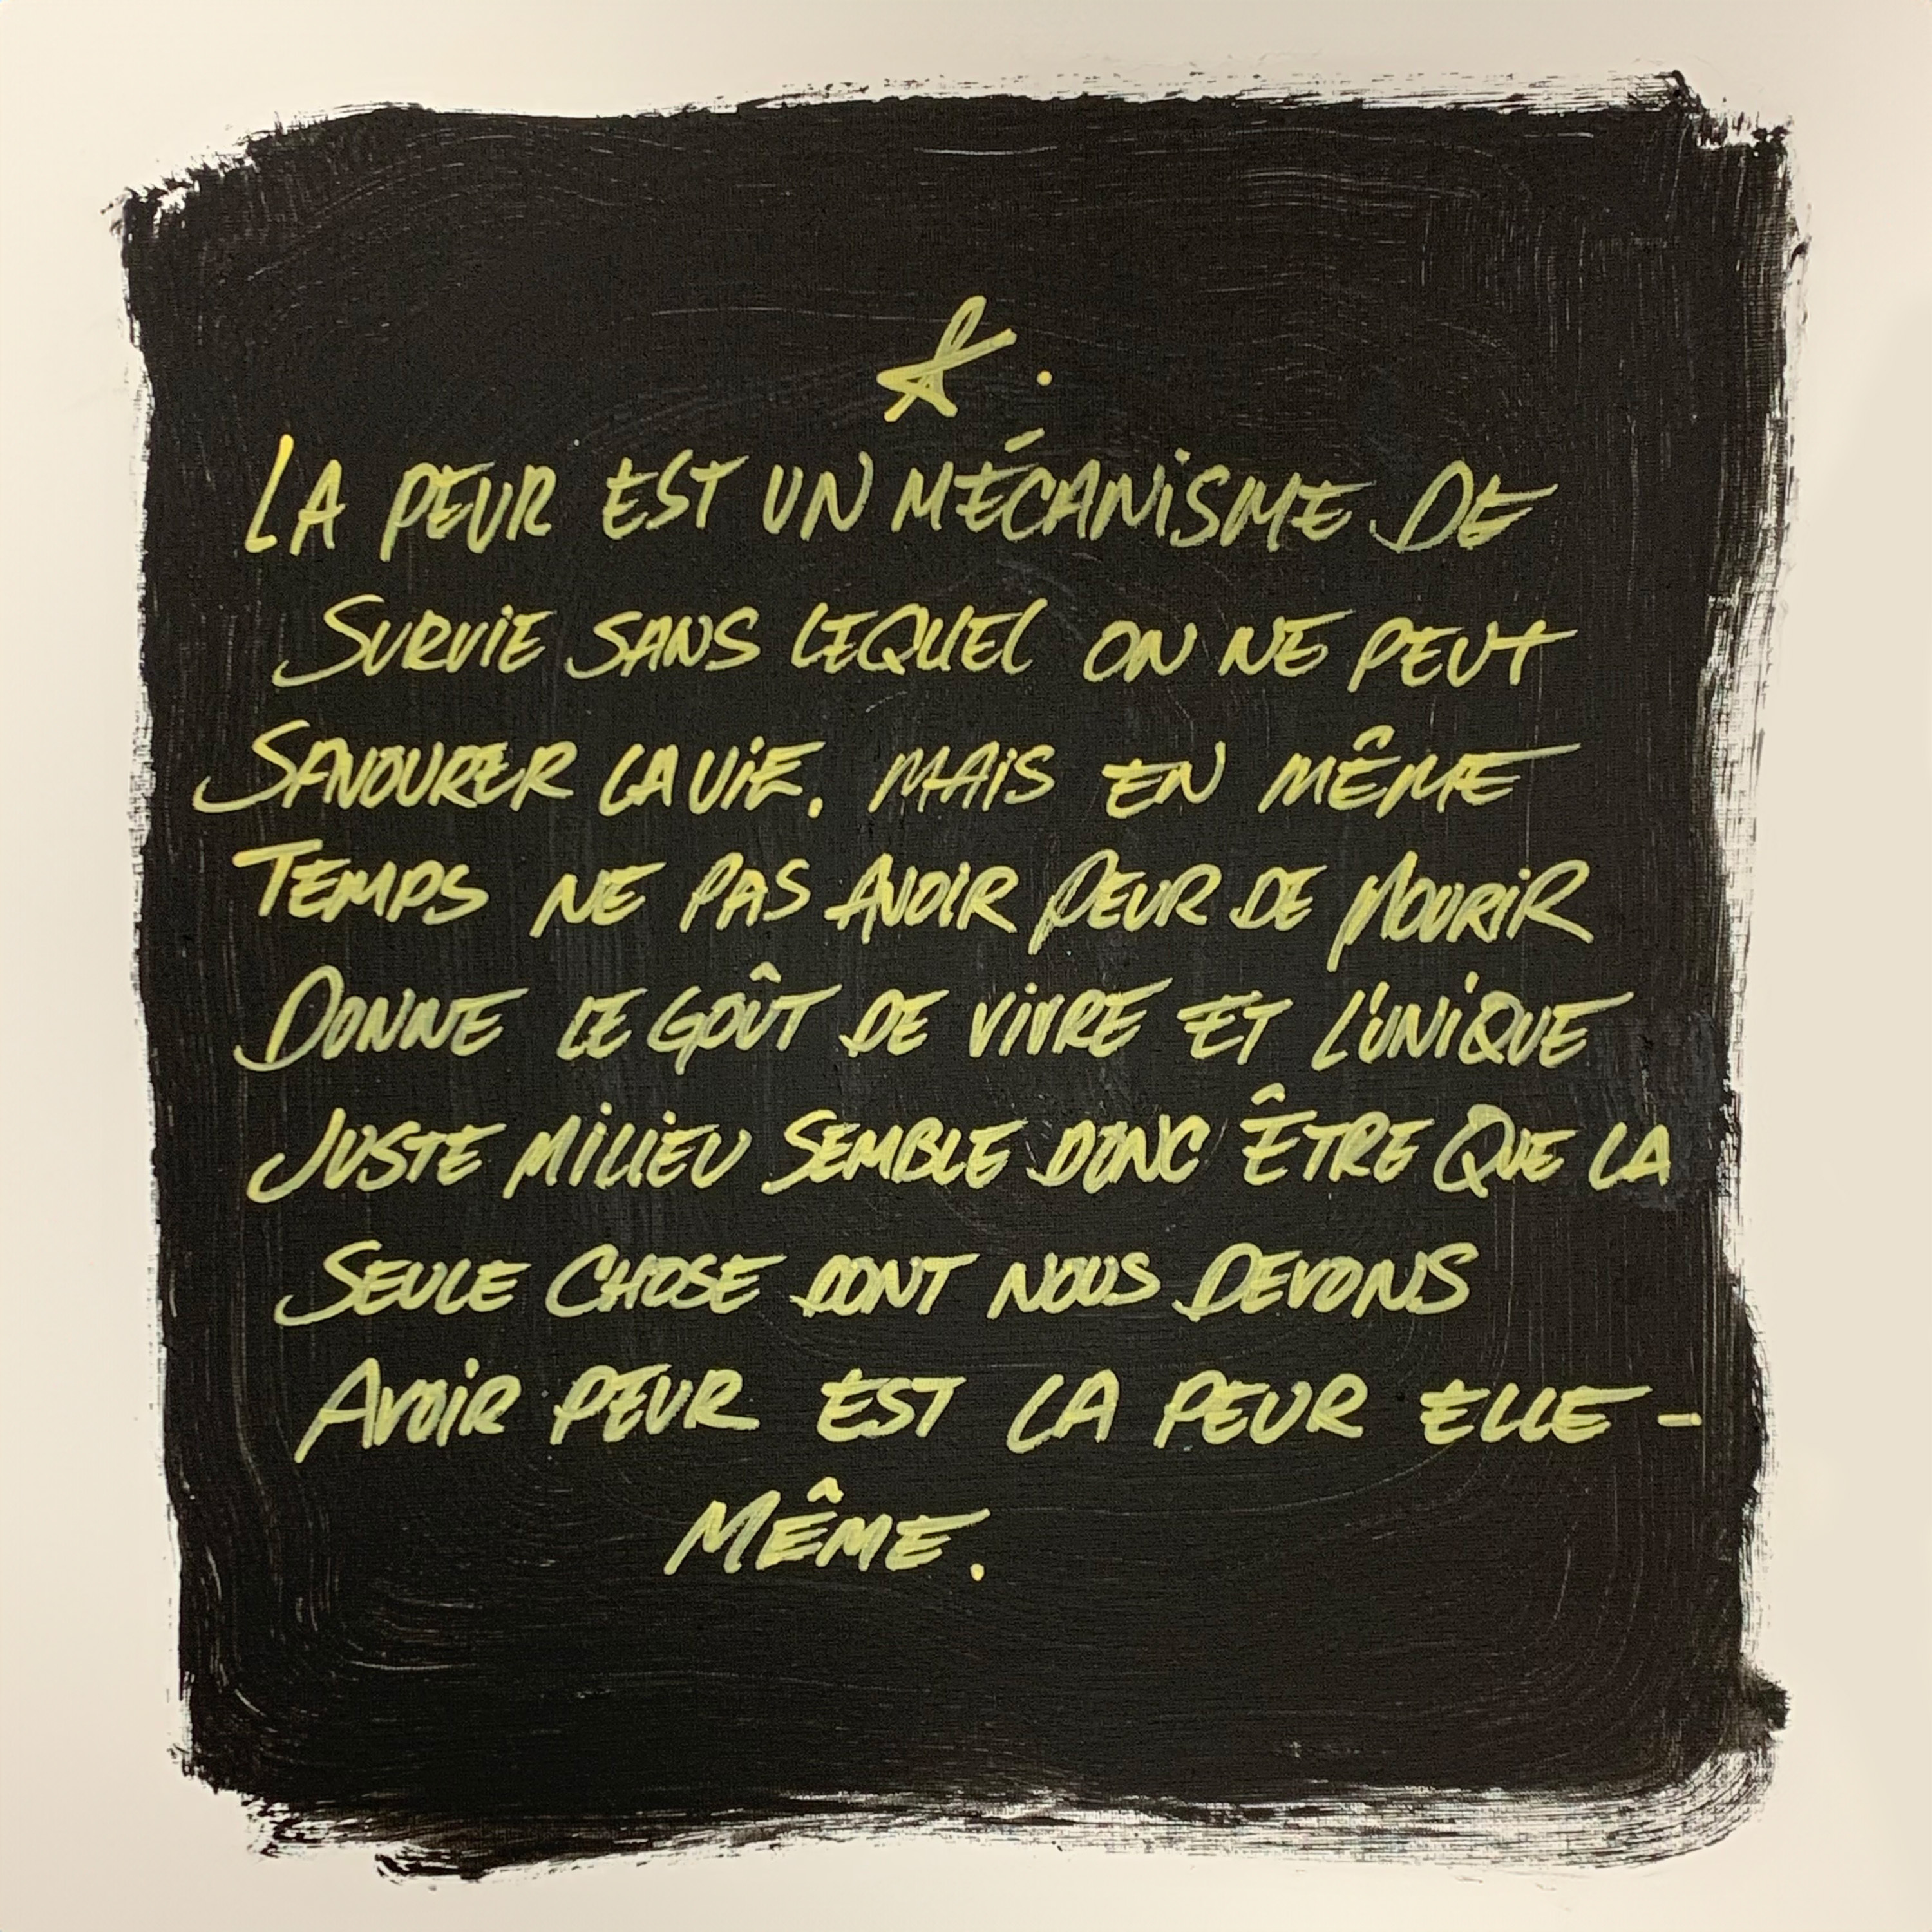 LA PEUR EST UN MÉCANISME DE
SURVIE SANS LEQUEL ON NE PEUT
SAVOURER LA VIE. MAIS EN MÊME
TEMPS NE PAS AVOIR PEUR DE MOURIR
DONNE LE GOÛT DE VIVRE ET L'UNIQUE
JUSTE MILIEU SEMBLE DONC ÊTRE QUE LA
SEULE CHOSE DONT NOUS DEVONS
AVOIR PEUR EST LA PEUR ELLE-
MÊME.